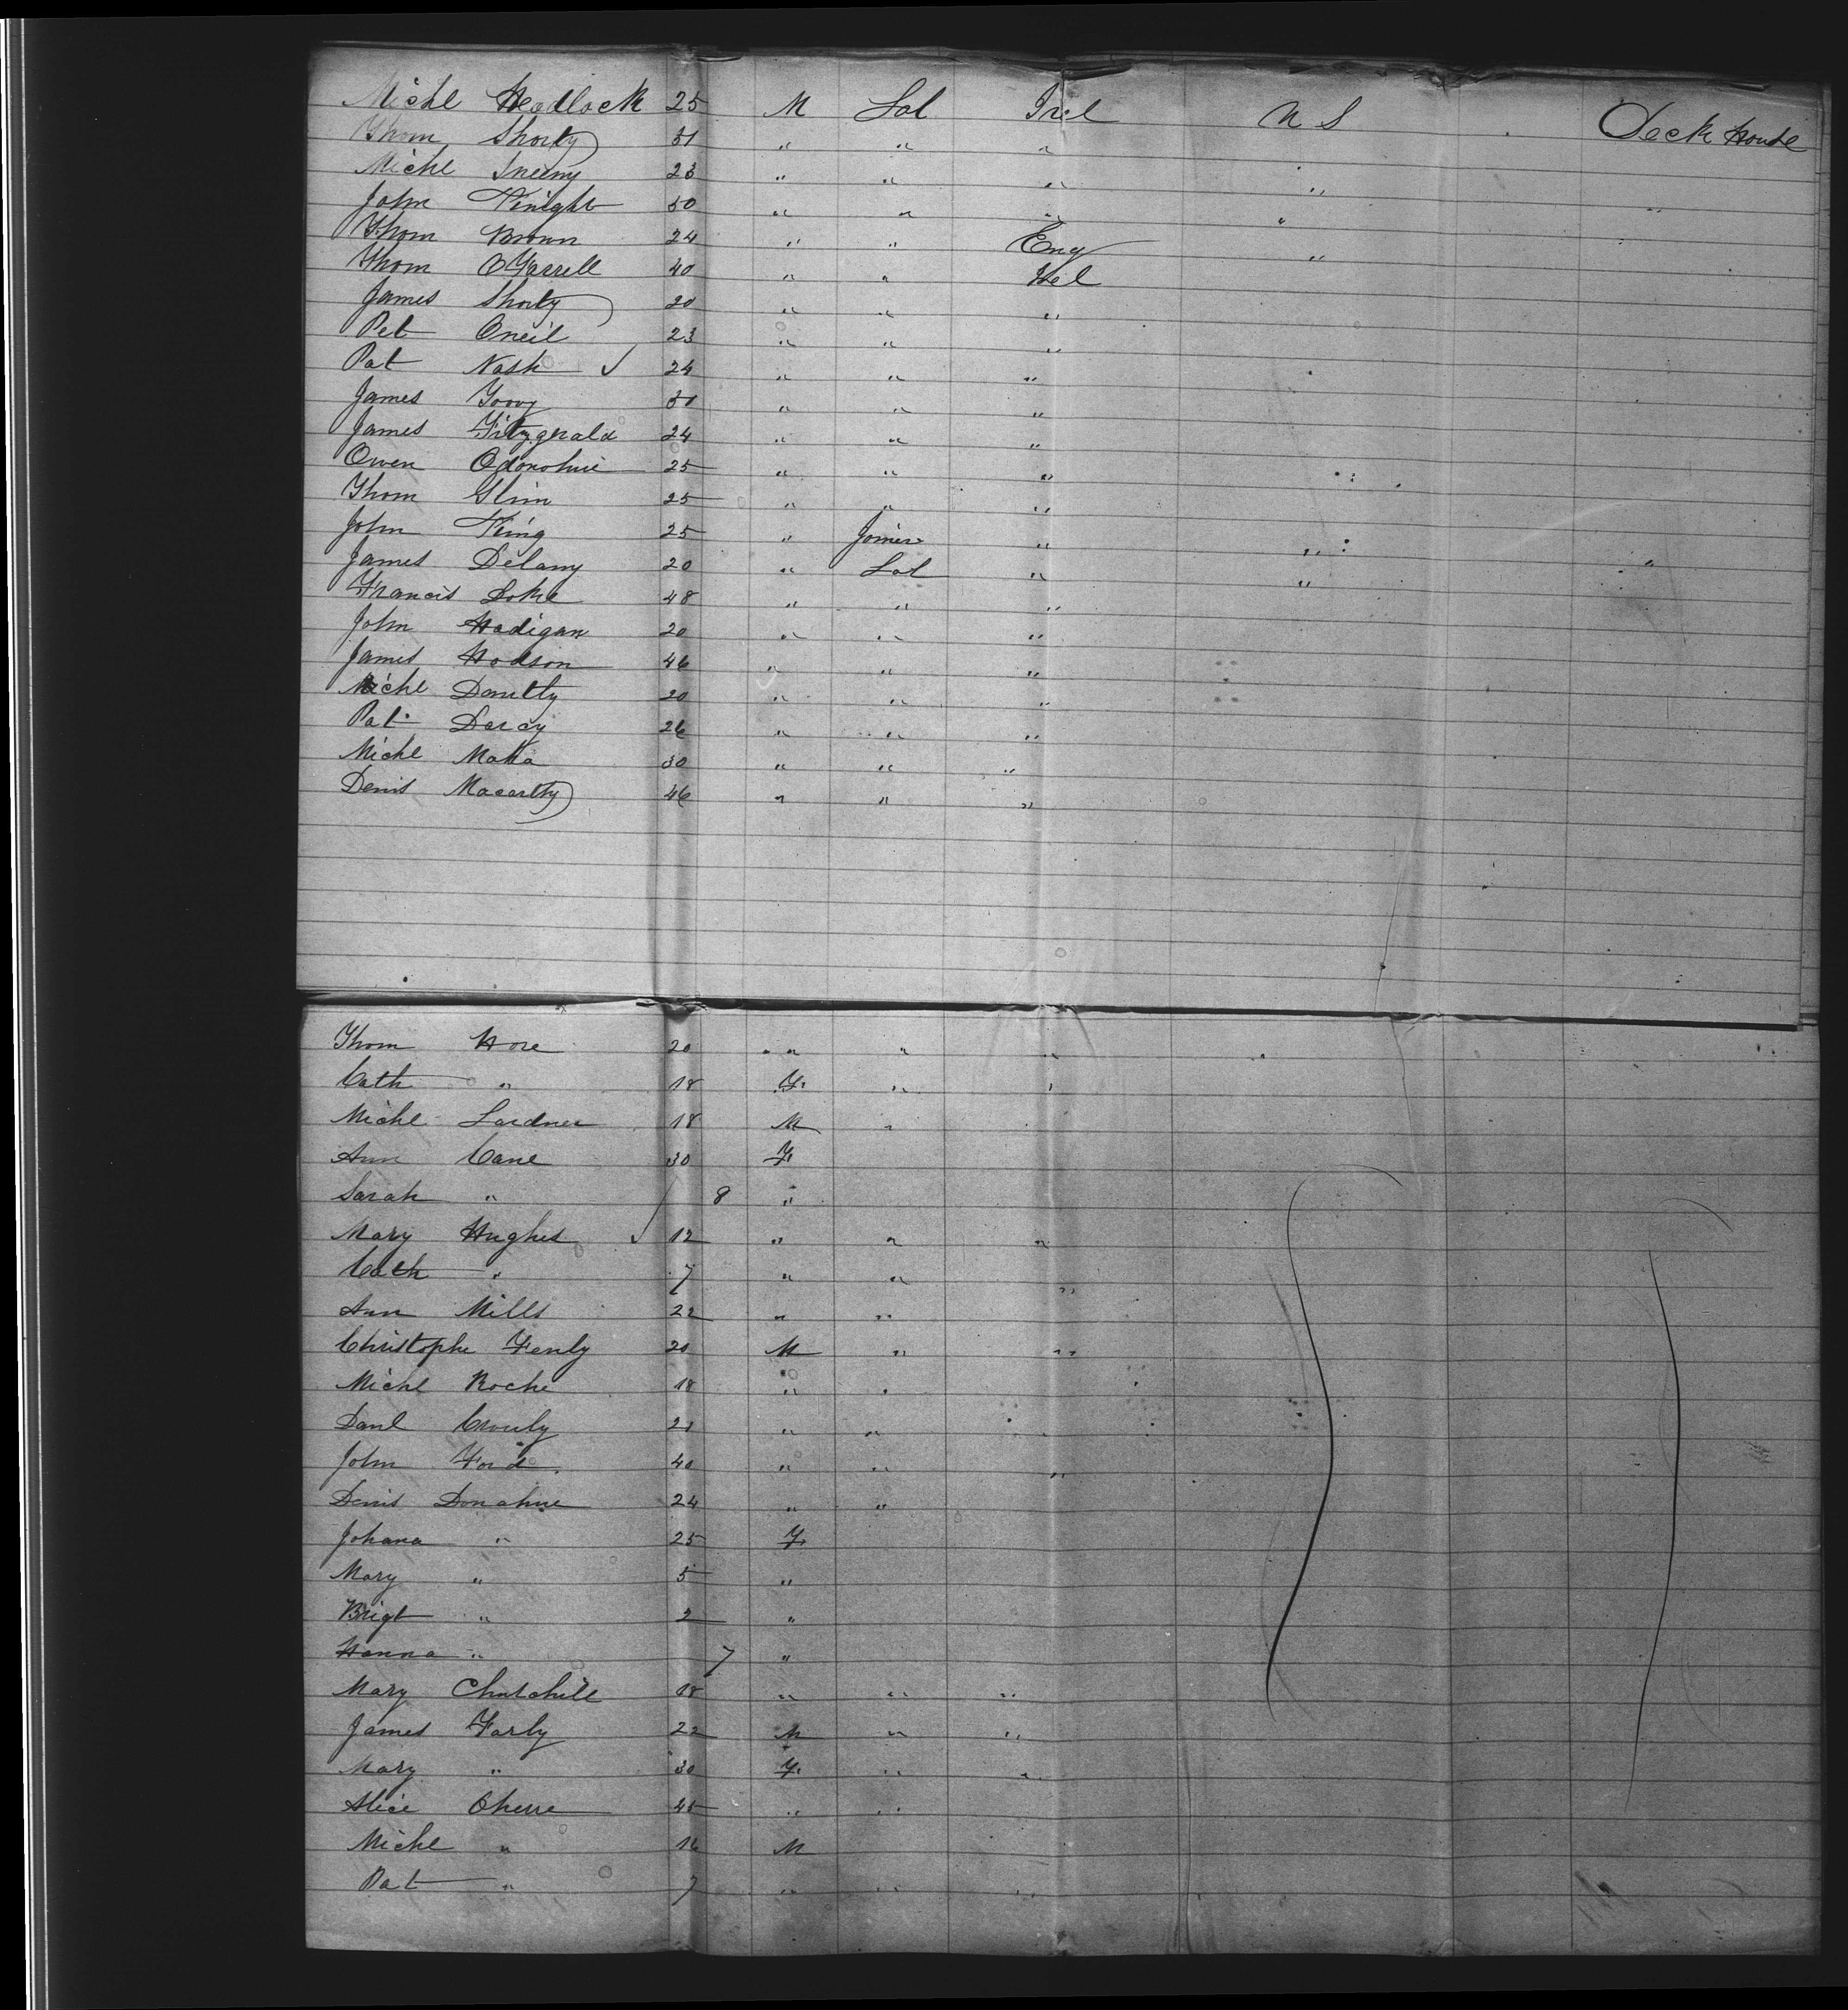 Michl Headlock 25 M Lab Irel U S Deck House
Thom Shorty 31 " " "
Michl 23 " " " "
John Knight 30 " " " " "
Thom Brown 24 " " Eng "
Thom O Farrell 40 " " Irel
James Shorty 20 " " "
Pet Oneil 23 " " "
Pat Nash ✓ 24 " " "
James 30 " " "
James Fitzgerald 24 " " "
Owen Odonohue 25 " " "
Thom Glin 25 " " "
John King 25 " Joiner " "
James Delany 20 " Lab " " "
Francis Loke 48 " " "
John Hadigan 20 " " "
James Hodson 46 " " "
Michl Dautly 20 " " "
Pat Darcy 26 " " "
Michl Maha 30 " " "
Denis Macarthy 46 " " "
Thom Hore 20 " " "
Cath " 18 F. " "
Michl Lardner 18 M "
Ann Cane 30 F.
Sarah " 8 "
Mary Hughes ✓ 12 " " "
Cath " 7 " " "
Ann Mills 22 " "
Christophe Fenly 20 M " "
Michl Roche 18 " "
Danl Crouly 21 " "
John Ford 40 " " "
Denis Donahue 24 " "
Johana " 25 F.
Mary " 5 "
Brigt " 2 "
Hanna " 7 "
Mary Chutchill 18 " " "
James Farly 22 M " "
Mary " 30 F. " "
Alice Oherre 45 " "
Michl " 16 M
Pat " 7 " " "